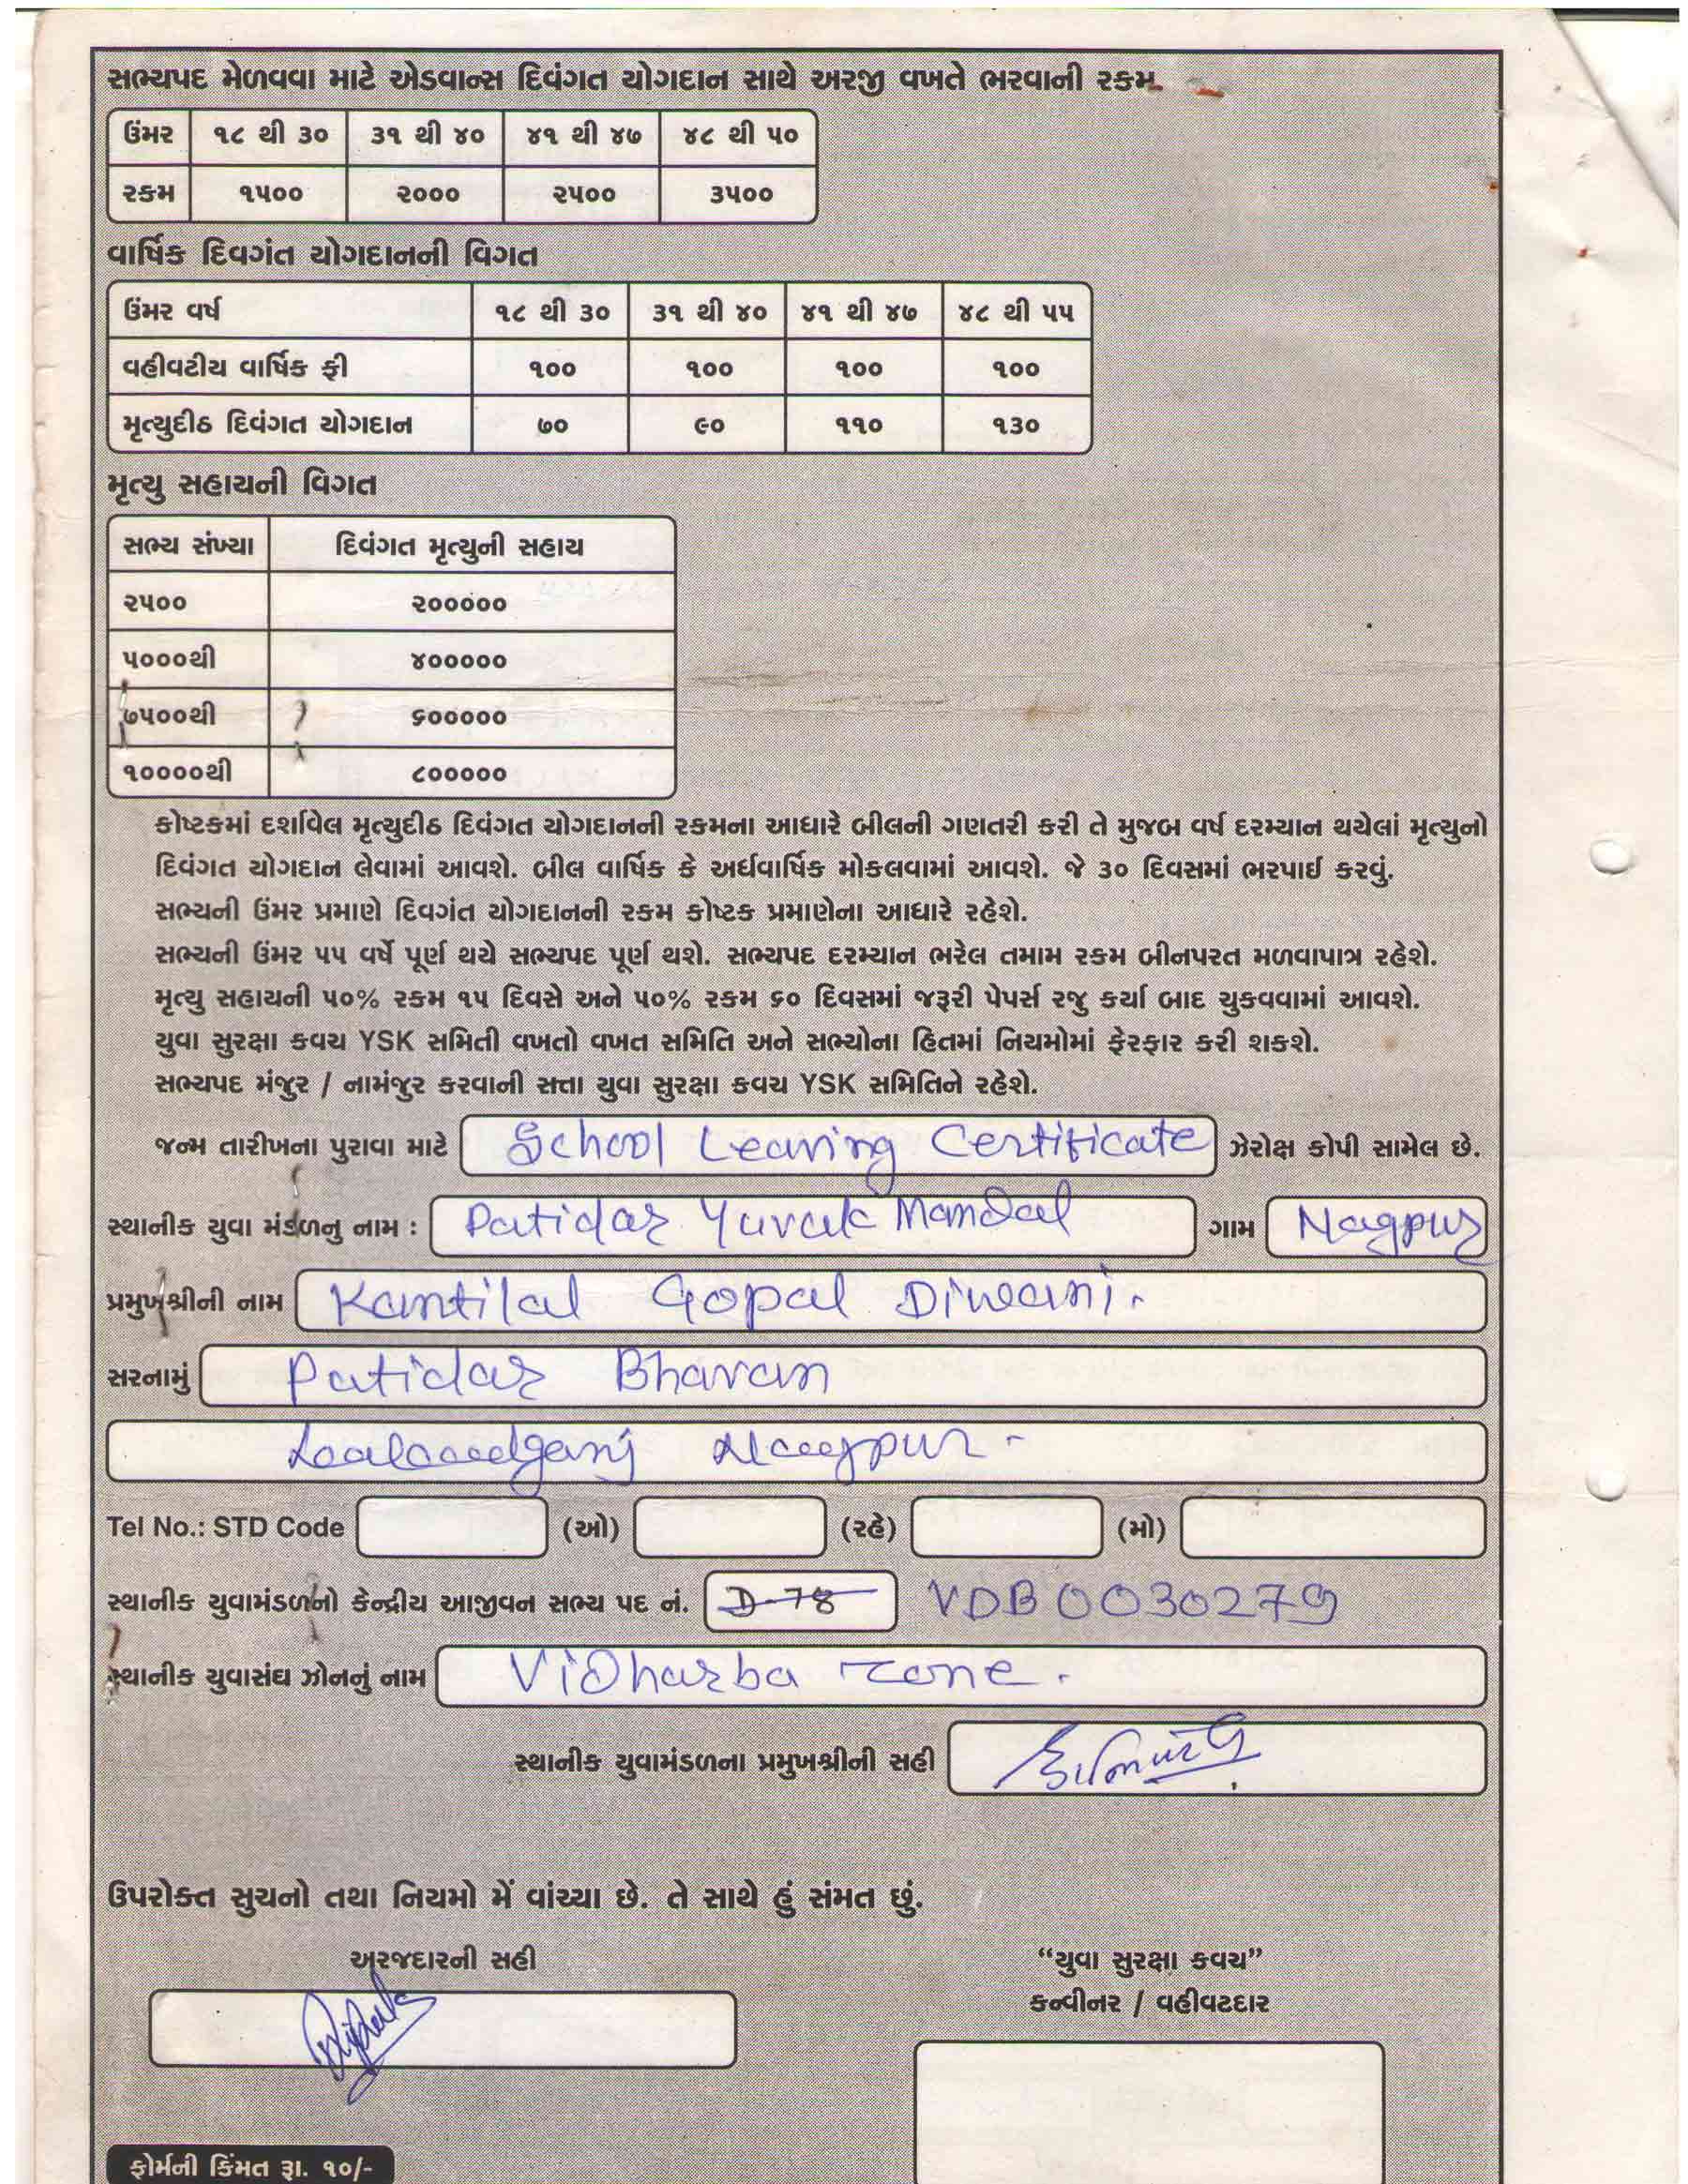 સભ્યપદ મેળવવા માટે એડવાન્સ દિવંગત યોગદાન સાથે અરજી વખતે ભરવાની રકમ.
ઉંમર ૧૮ થી ૩૦ ૩૧ થી ૪૦ ૪૧ થી ૪૭ ૪૮ થી ૫૦
રકમ ૧૫૦૦ ૨૦૦૦ ૨૫૦૦ ૩૫૦૦
વાર્ષિક દિવગંત યોગદાનની વિગત
ઉંમર વર્ષ ૧૮ થી ૩૦ ૩૧ થી ૪૦ ૪૧ થી ૪૭ ૪૮ થી ૫૫
વહીવટીય વાર્ષિક ફી ૧૦૦ ૧૦૦ ૧૦૦ ૧૦૦
મૃત્યુદીઠ દિવંગત યોગદાન ૭૦ ૯૦ ૧૧૦ ૧૩૦
મૃત્યુ સહાયની વિગત
સભ્ય સંખ્યા દિવંગત મૃત્યુની સહાય
૨૫૦૦ ૨૦૦૦૦૦
૫૦૦૦થી ૪૦૦૦૦૦
૭૫૦૦થી ૬૦૦૦૦૦
૧૦૦૦૦થી ૮૦૦૦૦૦
કોષ્ટકમાં દર્શાવેલ મૃત્યુદીઠ દિવંગત યોગદાનની રકમના આધારે બીલની ગણતરી કરી તે મુજબ વર્ષ દરમ્યાન થયેલાં મૃત્યુનો
દિવંગત યોગદાન લેવામાં આવશે. બીલ વાર્ષિક કે અર્ધવાર્ષિક મોકલવામાં આવશે. જે ૩૦ દિવસમાં ભરપાઈ કરવું.
સભ્યની ઉંમર પ્રમાણે દિવગંત યોગદાનની રકમ કોષ્ટક પ્રમાણેના આધારે રહેશે.
સભ્યની ઉંમર ૫૫ વર્ષે પૂર્ણ થયે સભ્યપદ પૂર્ણ થશે. સભ્યપદ દરમ્યાન ભરેલ તમામ રકમ બીનપરત મળવાપાત્ર રહેશે.
મૃત્યુ સહાયની ૫૦% રકમ ૧૫ દિવસે અને ૫૦% રકમ ૬૦ દિવસમાં જરૂરી પેપર્સ રજુ કર્યા બાદ ચુકવવામાં આવશે.
યુવા સુરક્ષા કવચ YSK સમિતી વખતો વખત સમિતિ અને સભ્યોના હિતમાં નિયમોમાં ફેરફાર કરી શકશે.
સભ્યપદ મંજુર / નામંજુર કરવાની સત્તા યુવા સુરક્ષા કવચ YSK સમિતિને રહેશે.
જન્મ તારીખના પુરાવા માટે School Leaving Certificate ઝેરોક્ષ કોપી સામેલ છે.
સ્થાનીક યુવા મંડળનુ નામ : Patidar Yuvak Mandal ગામ Nagpur
પ્રમુખશ્રીની નામ Kantilal Gopal Diwani.
સરનામું Patidar Bhavan
Nagpur
Tel No.: STD Code (ઓ) (રહે) (મો)
સ્થાનીક યુવામંડળનો કેન્દ્રીય આજીવન સભ્ય પદ નં. D-78 VDB0030279
સ્થાનીક યુવાસંઘ ઝોનનું નામ Vidharba zone.
સ્થાનીક યુવામંડળના પ્રમુખશ્રીની સહી
ઉપરોક્ત સુચનો તથા નિયમો મેં વાંચ્યા છે. તે સાથે હું સંમત છું.
અરજદારની સહી
“યુવા સુરક્ષા કવચ”
કન્વીનર / વહીવટદાર
ફોર્મની કિંમત રૂા. ૧૦/-